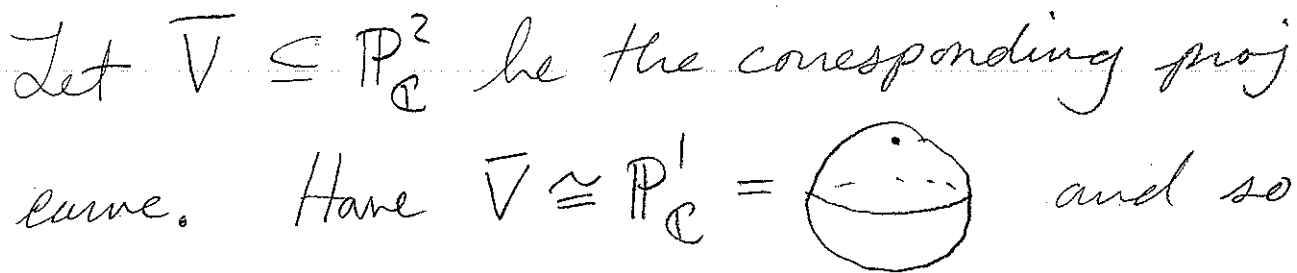 Let V̅ ⊆ ℙ²_ℂ be the corresponding proj
curve. Have V̅ ≅ ℙ¹_ℂ = and so